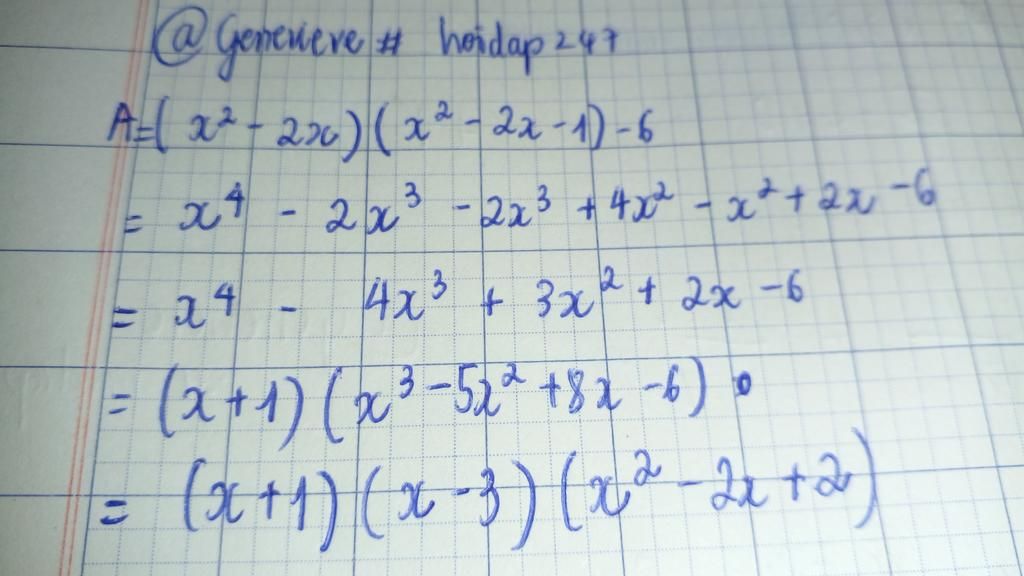 @Genevieve # hoidap247
A=(x² - 2x)(x² - 2x - 1) - 6
= x⁴ - 2x³ - 2x³ + 4x² - x² + 2x - 6
= x⁴ - 4x³ + 3x² + 2x - 6
= (x + 1)(x³ - 5x² + 8x - 6)
= (x + 1)(x - 3)(x² - 2x + 2)